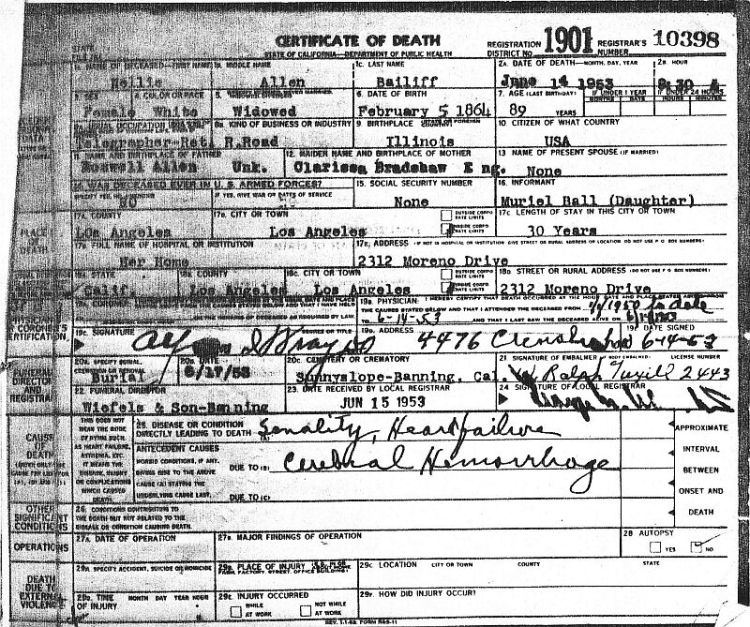 CERTIFICATE OF DEATH
STATE OF CALIFORNIA—DEPARTMENT OF PUBLIC HEALTH
STATE FILE NO.
REGISTRATION DISTRICT NO. 1901 REGISTRAR'S NUMBER 10398
1A. NAME OF DECEASED—FIRST NAME 1B. MIDDLE NAME 1C. LAST NAME 2A. DATE OF DEATH—MONTH, DAY, YEAR 2B. HOUR
Nellie Allen Bailiff June 14 1953 9:30 A
3. SEX 4. COLOR OR RACE 5. 6. DATE OF BIRTH 7. AGE (LAST BIRTHDAY) IF UNDER 1 YEAR IF UNDER 24 HOURS
Female White Widowed February 5 1864 89 YEARS MONTHS DAYS HOURS MINUTES
8B. KIND OF BUSINESS OR INDUSTRY 9. BIRTHPLACE 10. CITIZEN OF WHAT COUNTRY
Telegrapher-Ret. R.Road Illinois USA
11. NAME AND BIRTHPLACE OF FATHER 12. MAIDEN NAME AND BIRTHPLACE OF MOTHER 13. NAME OF PRESENT SPOUSE (IF MARRIED)
Allen Unk. Clarissa Bradshaw Eng. None
14. WAS DECEASED EVER IN U. S. ARMED FORCES? 15. SOCIAL SECURITY NUMBER 16. INFORMANT
NO IF YES, GIVE WAR OR DATES OF SERVICE None Muriel Ball (Daughter)
PLACE OF DEATH
17A. COUNTY 17B. CITY OR TOWN OUTSIDE CORPORATE LIMITS 17C. LENGTH OF STAY IN THIS CITY OR TOWN
Los Angeles Los Angeles INSIDE CORPORATE LIMITS 30 Years
17D. FULL NAME OF HOSPITAL OR INSTITUTION 17E. ADDRESS
Her Home 2312 Moreno Drive
18A. STATE 18B. COUNTY 18C. CITY OR TOWN OUTSIDE CORPORATE LIMITS 18D. STREET OR RURAL ADDRESS
Calif. Los Angeles Los Angeles INSIDE CORPORATE LIMITS 2312 Moreno Drive
19B. PHYSICIAN: I HEREBY CERTIFY THAT DEATH OCCURRED AT THE HOUR DATE AND PLACE STATED ABOVE FROM
THE CAUSES STATED BELOW AND THAT I ATTENDED THE DECEASED FROM 1950 to date
TO 6-14-53 AND THAT I LAST SAW THE DECEASED ALIVE ON
19C. SIGNATURE DEGREE OR TITLE 19D. ADDRESS 19E. DATE SIGNED
4476 Crenshaw 6-14-53
FUNERAL DIRECTOR AND REGISTRAR
20A. SPECIFY BURIAL, CREMATION OR REMOVAL 20B. DATE 20C. CEMETERY OR CREMATORY 21. SIGNATURE OF EMBALMER LICENSE NUMBER
Burial 6/17/53 Sunnyslope-Banning, Cal. Ralph Tuxill 2443
22. FUNERAL DIRECTOR 23. DATE RECEIVED BY LOCAL REGISTRAR 24. SIGNATURE OF LOCAL REGISTRAR
Wiefels & Son-Banning JUN 15 1953
CAUSE OF DEATH
25. DISEASE OR CONDITION DIRECTLY LEADING TO DEATH Senality, Heart failure
ANTECEDENT CAUSES
MORBID CONDITIONS, IF ANY, GIVING RISE TO THE ABOVE CAUSE (A) STATING THE UNDERLYING CAUSE LAST.
DUE TO (B) Cerebral Hemorrhage
DUE TO (C)
APPROXIMATE INTERVAL BETWEEN ONSET AND DEATH
OTHER SIGNIFICANT CONDITIONS
26. CONDITIONS CONTRIBUTING TO THE DEATH BUT NOT RELATED TO THE DISEASE OR CONDITION CAUSING DEATH.
OPERATIONS
27A. DATE OF OPERATION 27B. MAJOR FINDINGS OF OPERATION 28 AUTOPSY
YES NO
DEATH DUE TO EXTERNAL VIOLENCE
29A. SPECIFY ACCIDENT, SUICIDE OR HOMICIDE 29B. PLACE OF INJURY 29C. LOCATION CITY OR TOWN COUNTY STATE
29D. TIME OF INJURY MONTH DAY YEAR HOUR 29E. INJURY OCCURRED 29F. HOW DID INJURY OCCUR?
WHILE AT WORK NOT WHILE AT WORK